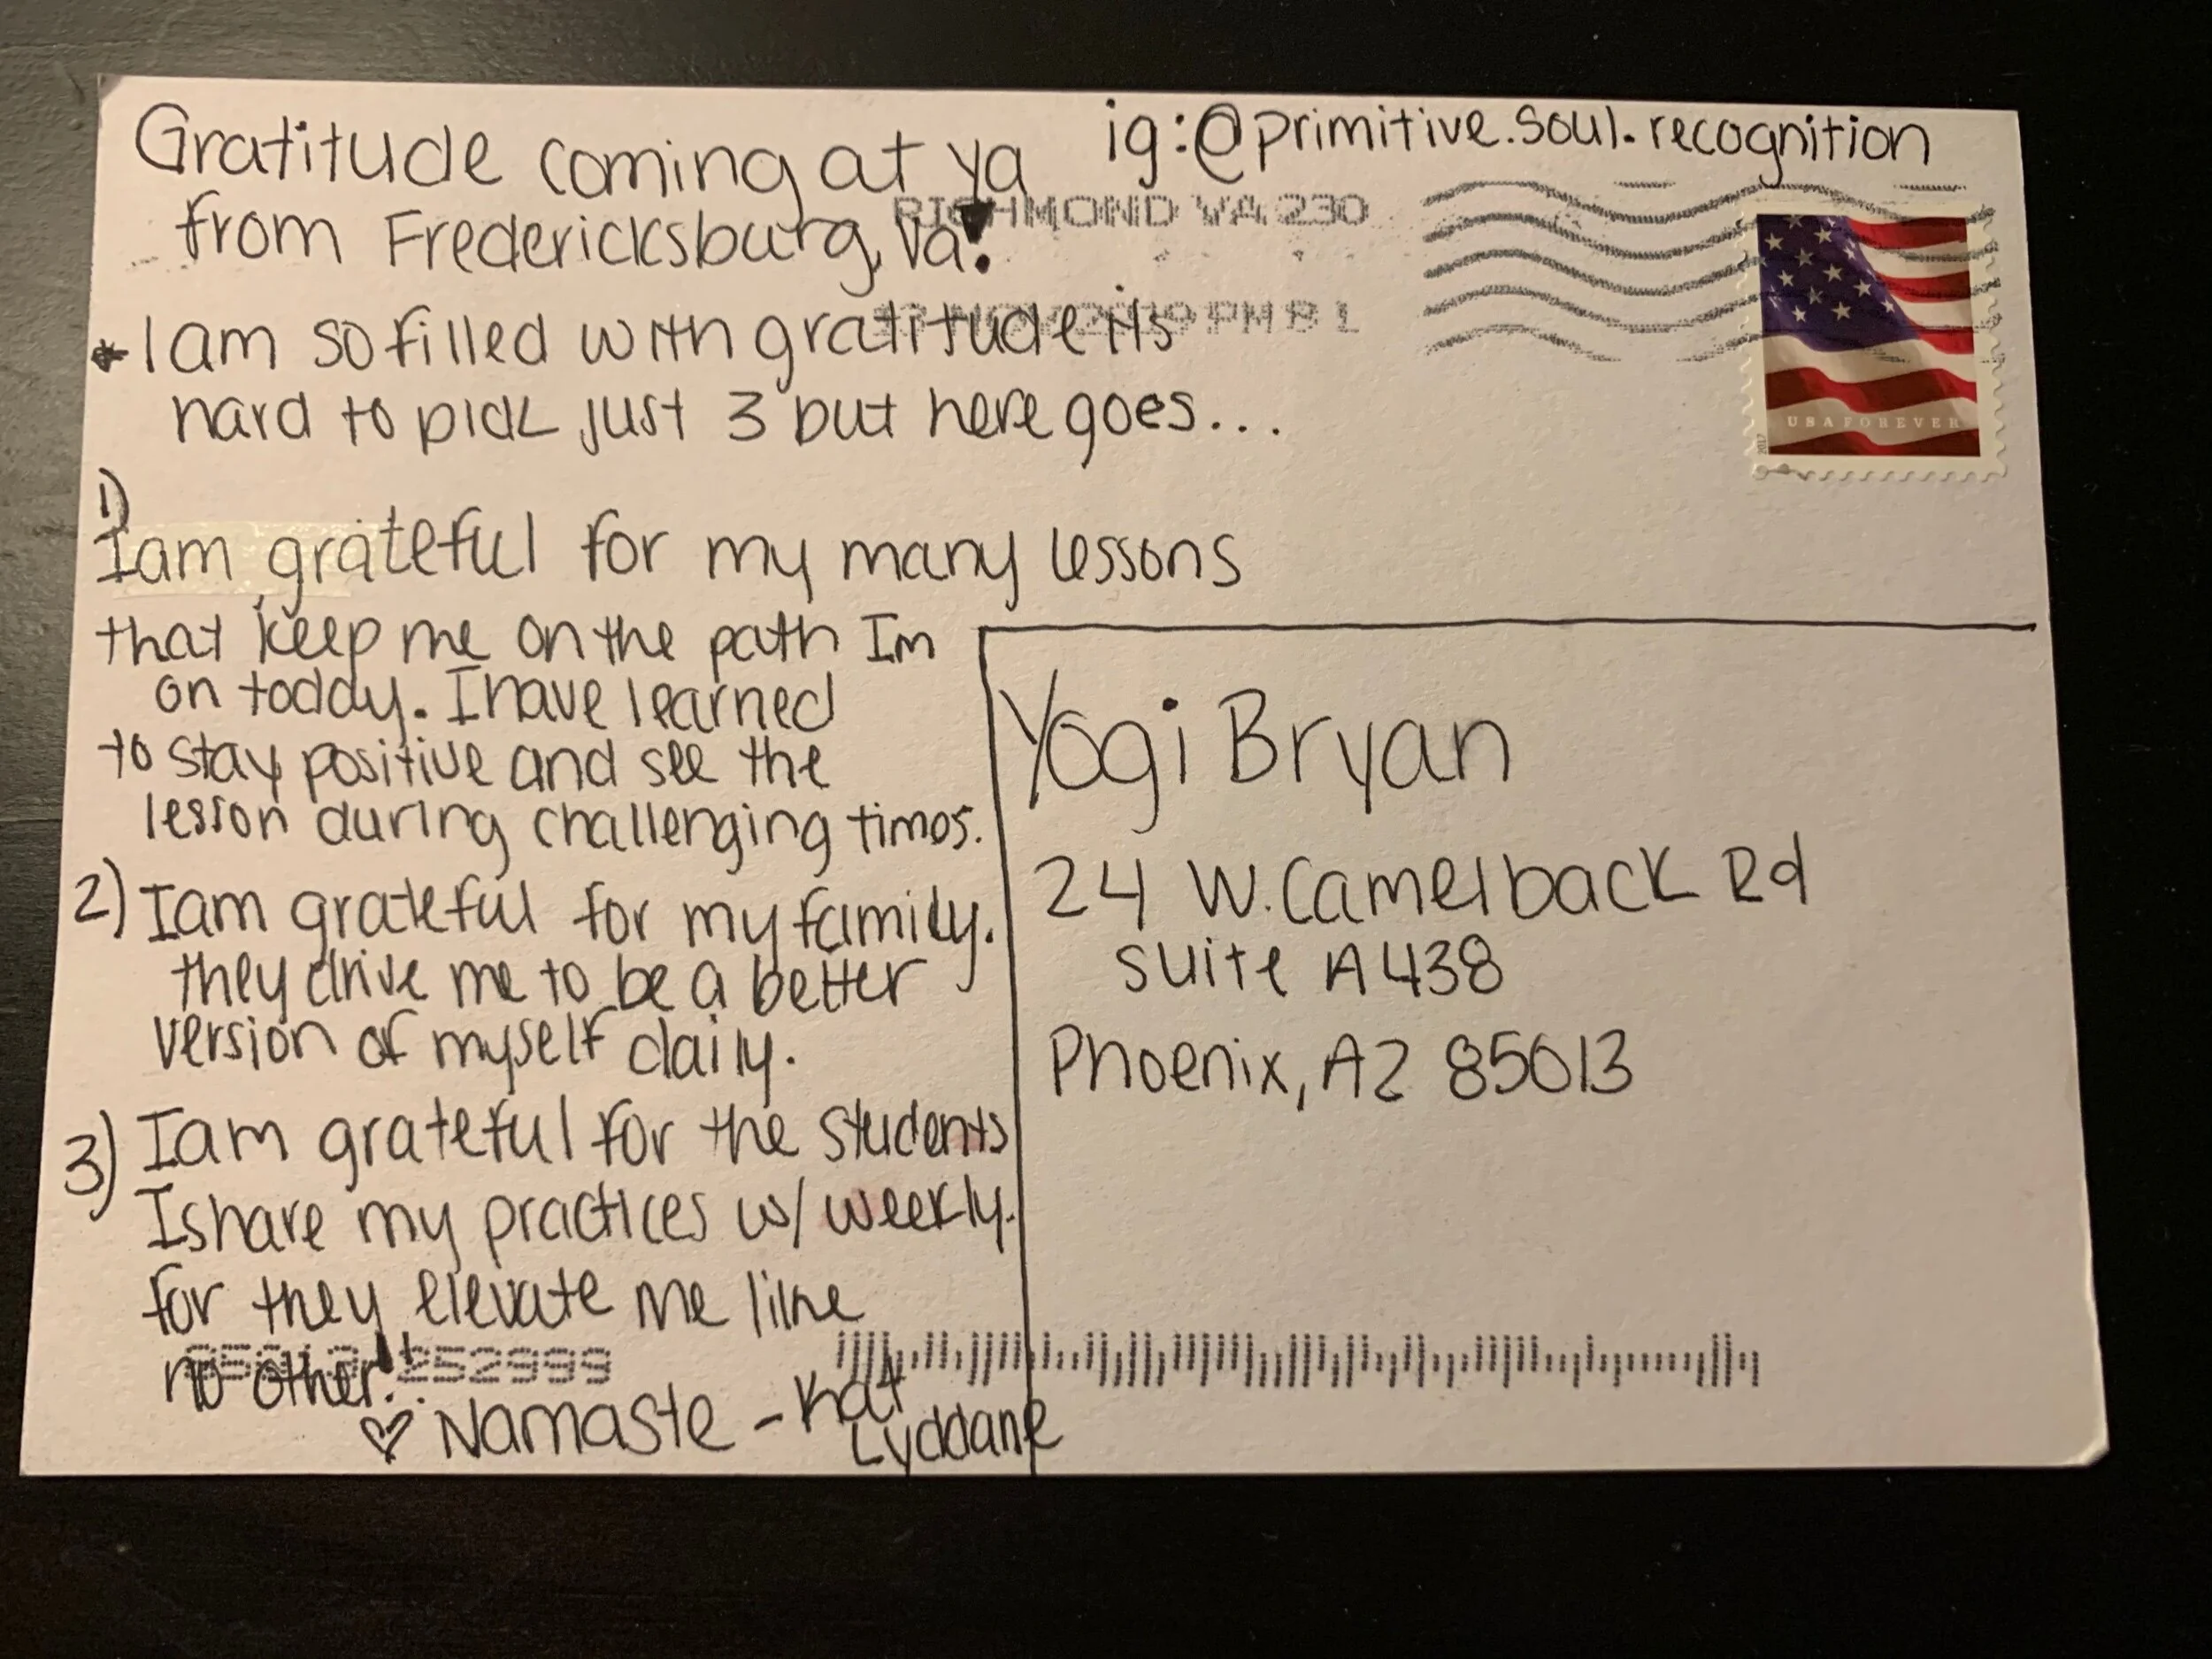 Gratitude coming at ya
from Fredericksburg, Va!
* I am so filled with gratitude its
hard to pick just 3 but here goes...
1)
I am grateful for my many lessons
that keep me on the path Im
on today. I have learned
to stay positive and see the
lesson during challenging times.
2) I am grateful for my family.
they drive me to be a better
version of myself daily.
3) I am grateful for the students
I share my practices w/ weekly.
for they elevate me like
no other!!
♡ Namaste - Kat
Lyddane
ig:@primitive.soul.recognition
RICHMOND VA 230
PM 8 L
USA FOREVER
2017
Yogi Bryan
24 W. Camelback Rd
suite A438
Phoenix, AZ 85013
252999